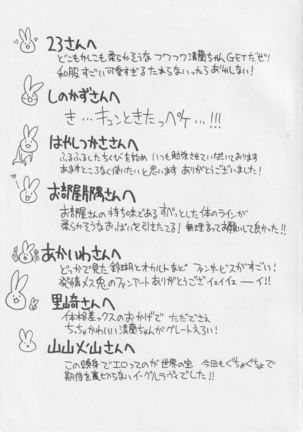 23さんへ
どこもかしこも柔らかそうな フワフワ清蘭ちゃんGETだぜ!
和服 すごい可愛すぎる たまらないったらありゃしない!
しのかずさんへ
き…キュンときたっペケ…!!!
はやしつかささんへ
ふるふるしたちくびを始め いつも勉強させていただいております
あますところなく使いたいと思います ありがとうございました!
お部屋さんへ
お部屋さんの持ち味である すべっとした体のラインが
柔らかそうなおっぱいを引きたてる! 無理言ってお願いして良かった!!
あかいわさんへ
どっかで見た鈴瑚とオカルトなど ファンサービスがすごい!
発情メス兎のファンアートありがとうございェイェイェーーイ!!
里崎さんへ
体格差ックスのおかげで ただでさえ
ちっちゃかわいい清蘭ちゃんがグレートえろい!
山山火山さんへ
この頭身でエロってのが世界の宝 今回もぐちょぐちょで
期待を裏切らないイーグルラヴィでした!!